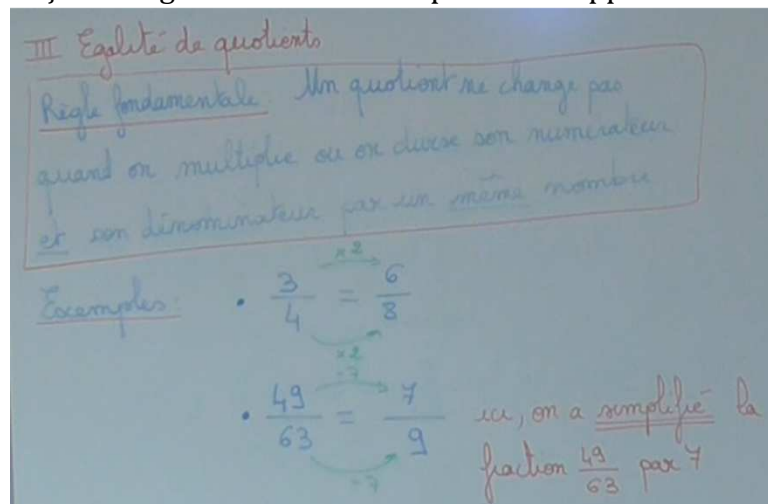 III Egalité de quotients
Règle fondamentale. Un quotient ne change pas
quand on multiplie ou on divise son numérateur
et son dénominateur par un même nombre
Exemples:
×2
• 3/4 = 6/8
×2
÷7
• 49/63 = 7/9 ici, on a simplifié la
÷7
fraction 49/63 par 7